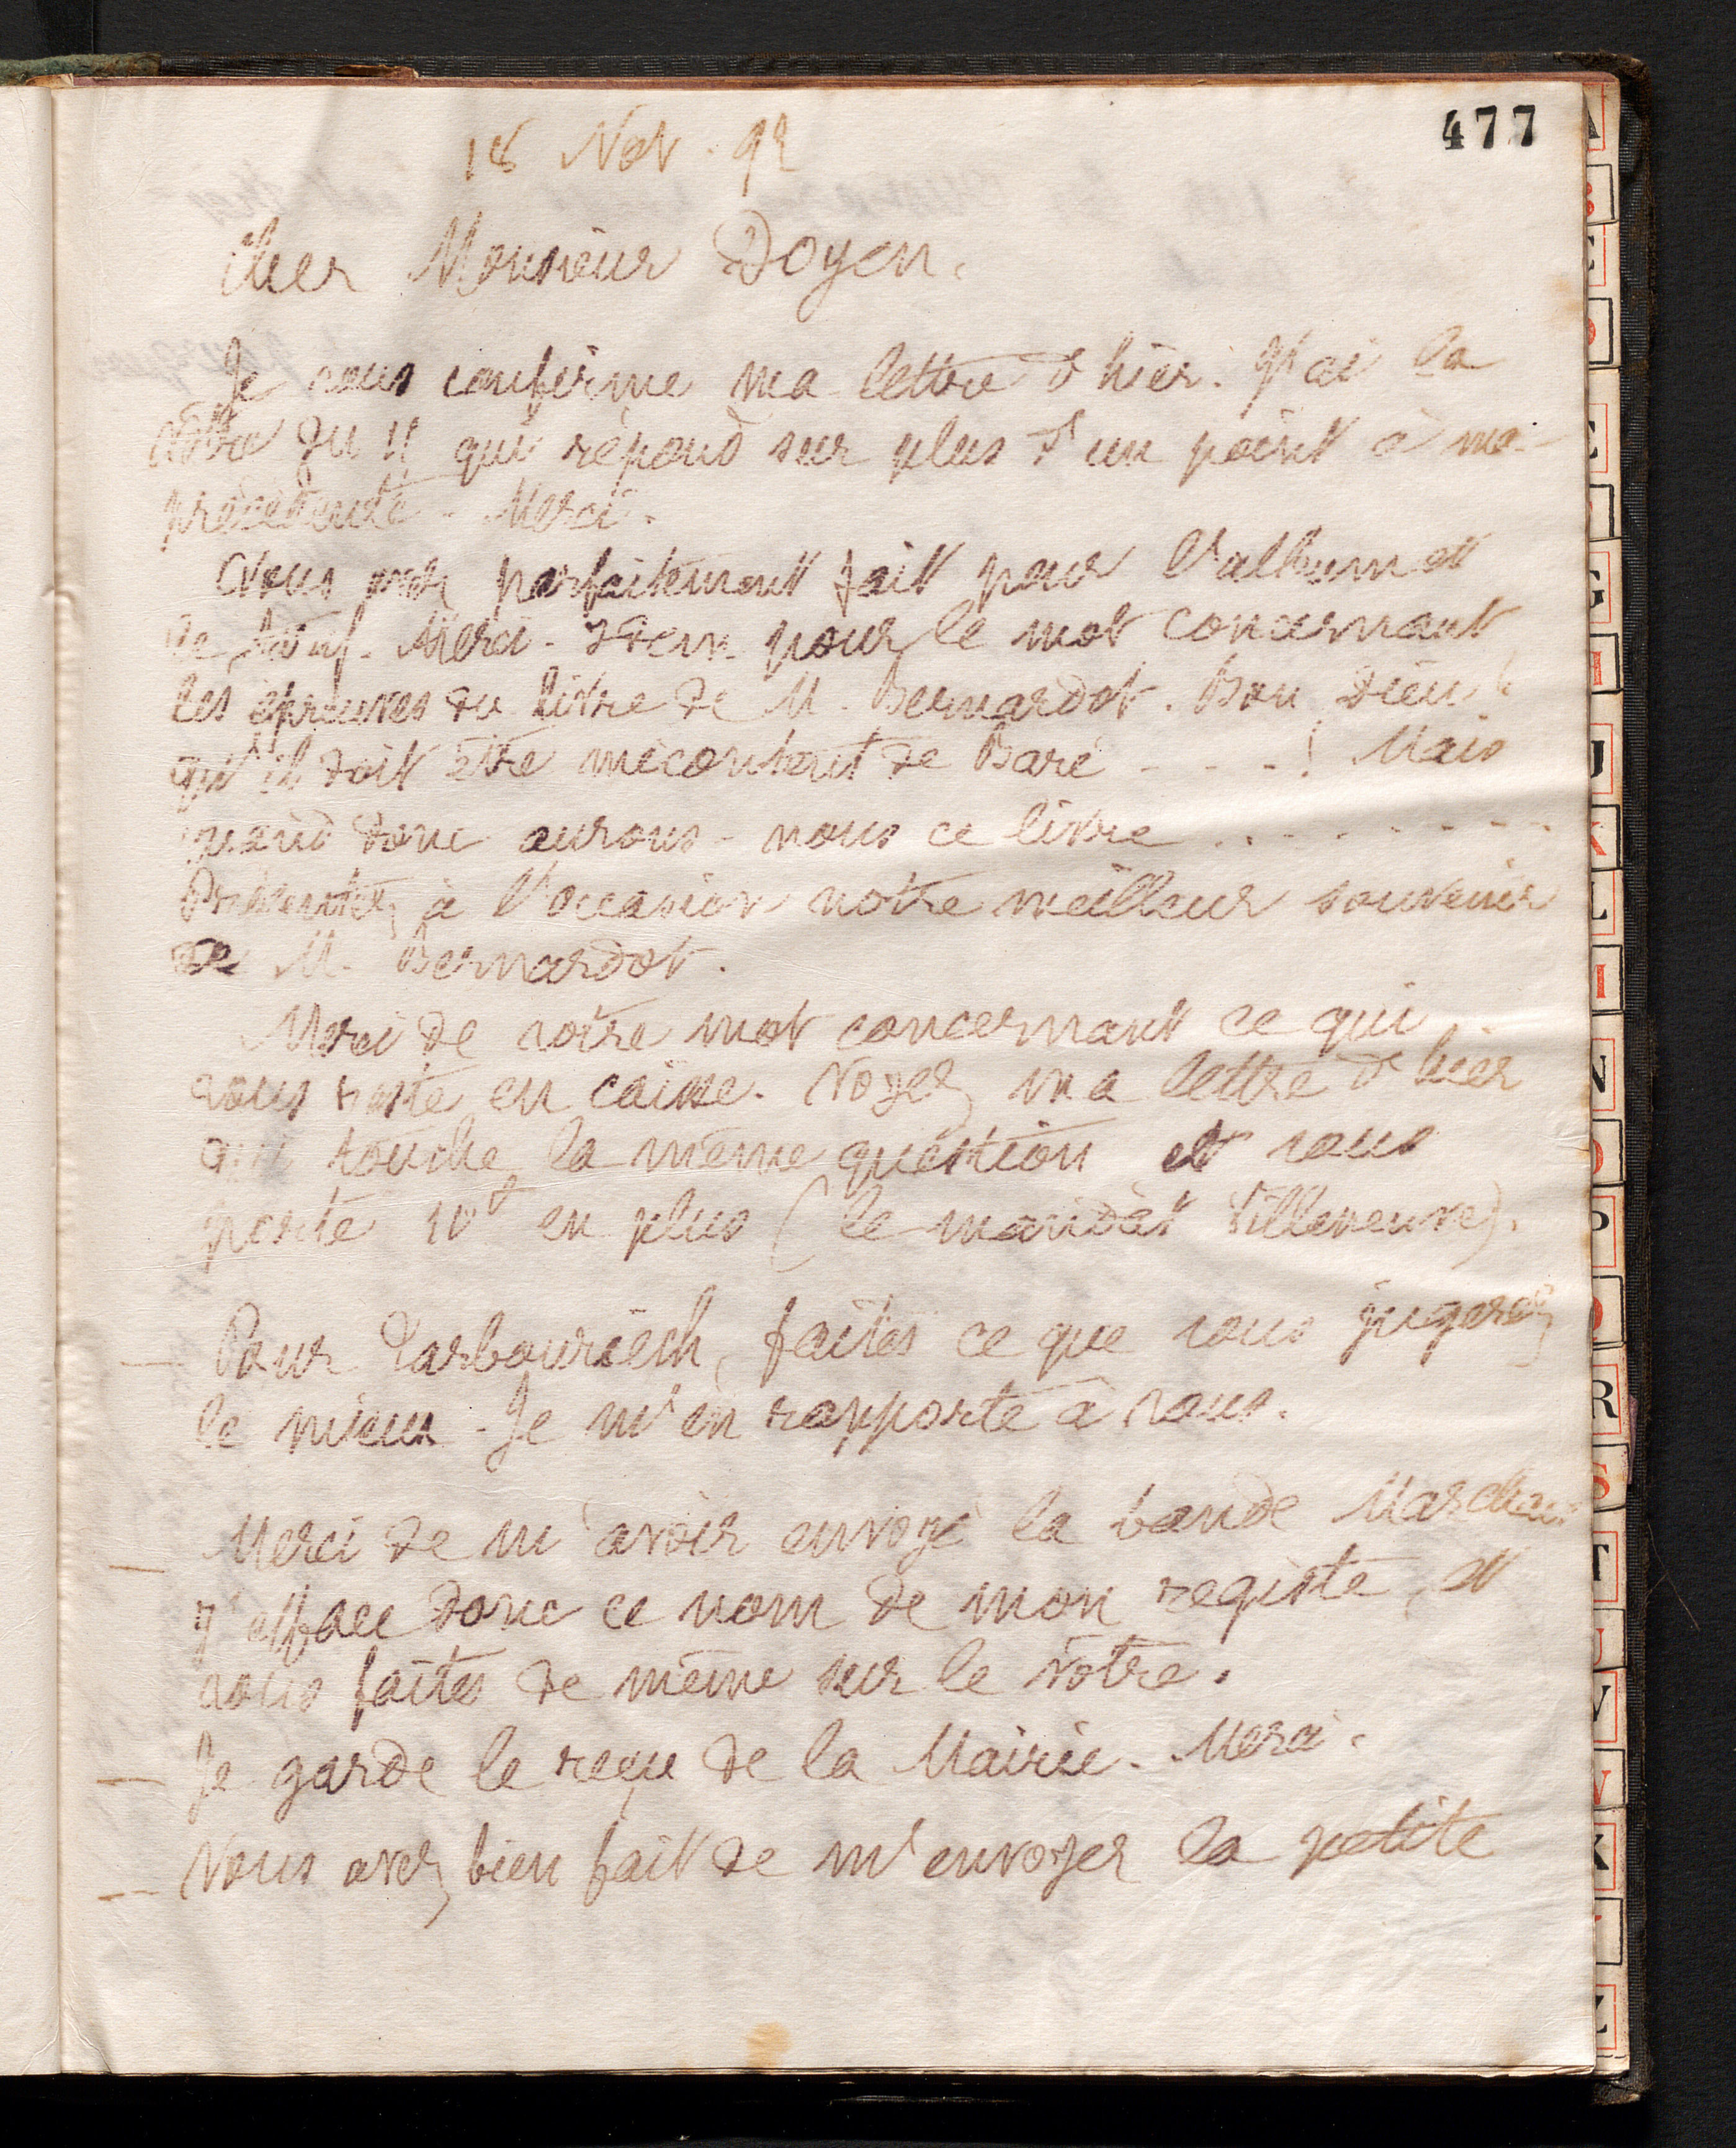 477
18 Nov. 92
Cher Monsieur Doyen.
Je vous confirme ma lettre d'hier. J'ai la
vôtre du 11 qui répond sur plus d'un point à ma
précédente. Merci.
Vous avez parfaitement fait pour l'album et
le tarif. Merci. Idem pour le mot concernant
les épreuves du livre de M. Bernardot. Bon Dieu !
qu'il doit être mécontent de Baré - - - ! Mais
quand donc aurons-nous ce livre . . - - - - - -
Présentez à l'occasion notre meilleur souvenir
à M. Bernardot.
Merci de votre mot concernant ce qui
vous reste en caisse. Voyez ma lettre d'hier
qui touche la même question et vous
porte 10f en plus (le mandat Villeneuve).
— Pour Tarbouriech, faites ce que vous jugerez
le mieux. Je m'en rapporte à vous.
— Merci de m'avoir envoyé la bande Marchand
j'efface donc ce nom de mon registe, et
vous faites de même sur le vôtre.
— Je garde le reçu de la Mairie. Merci.
— Vous avez bien fait de m'envoyer la petite